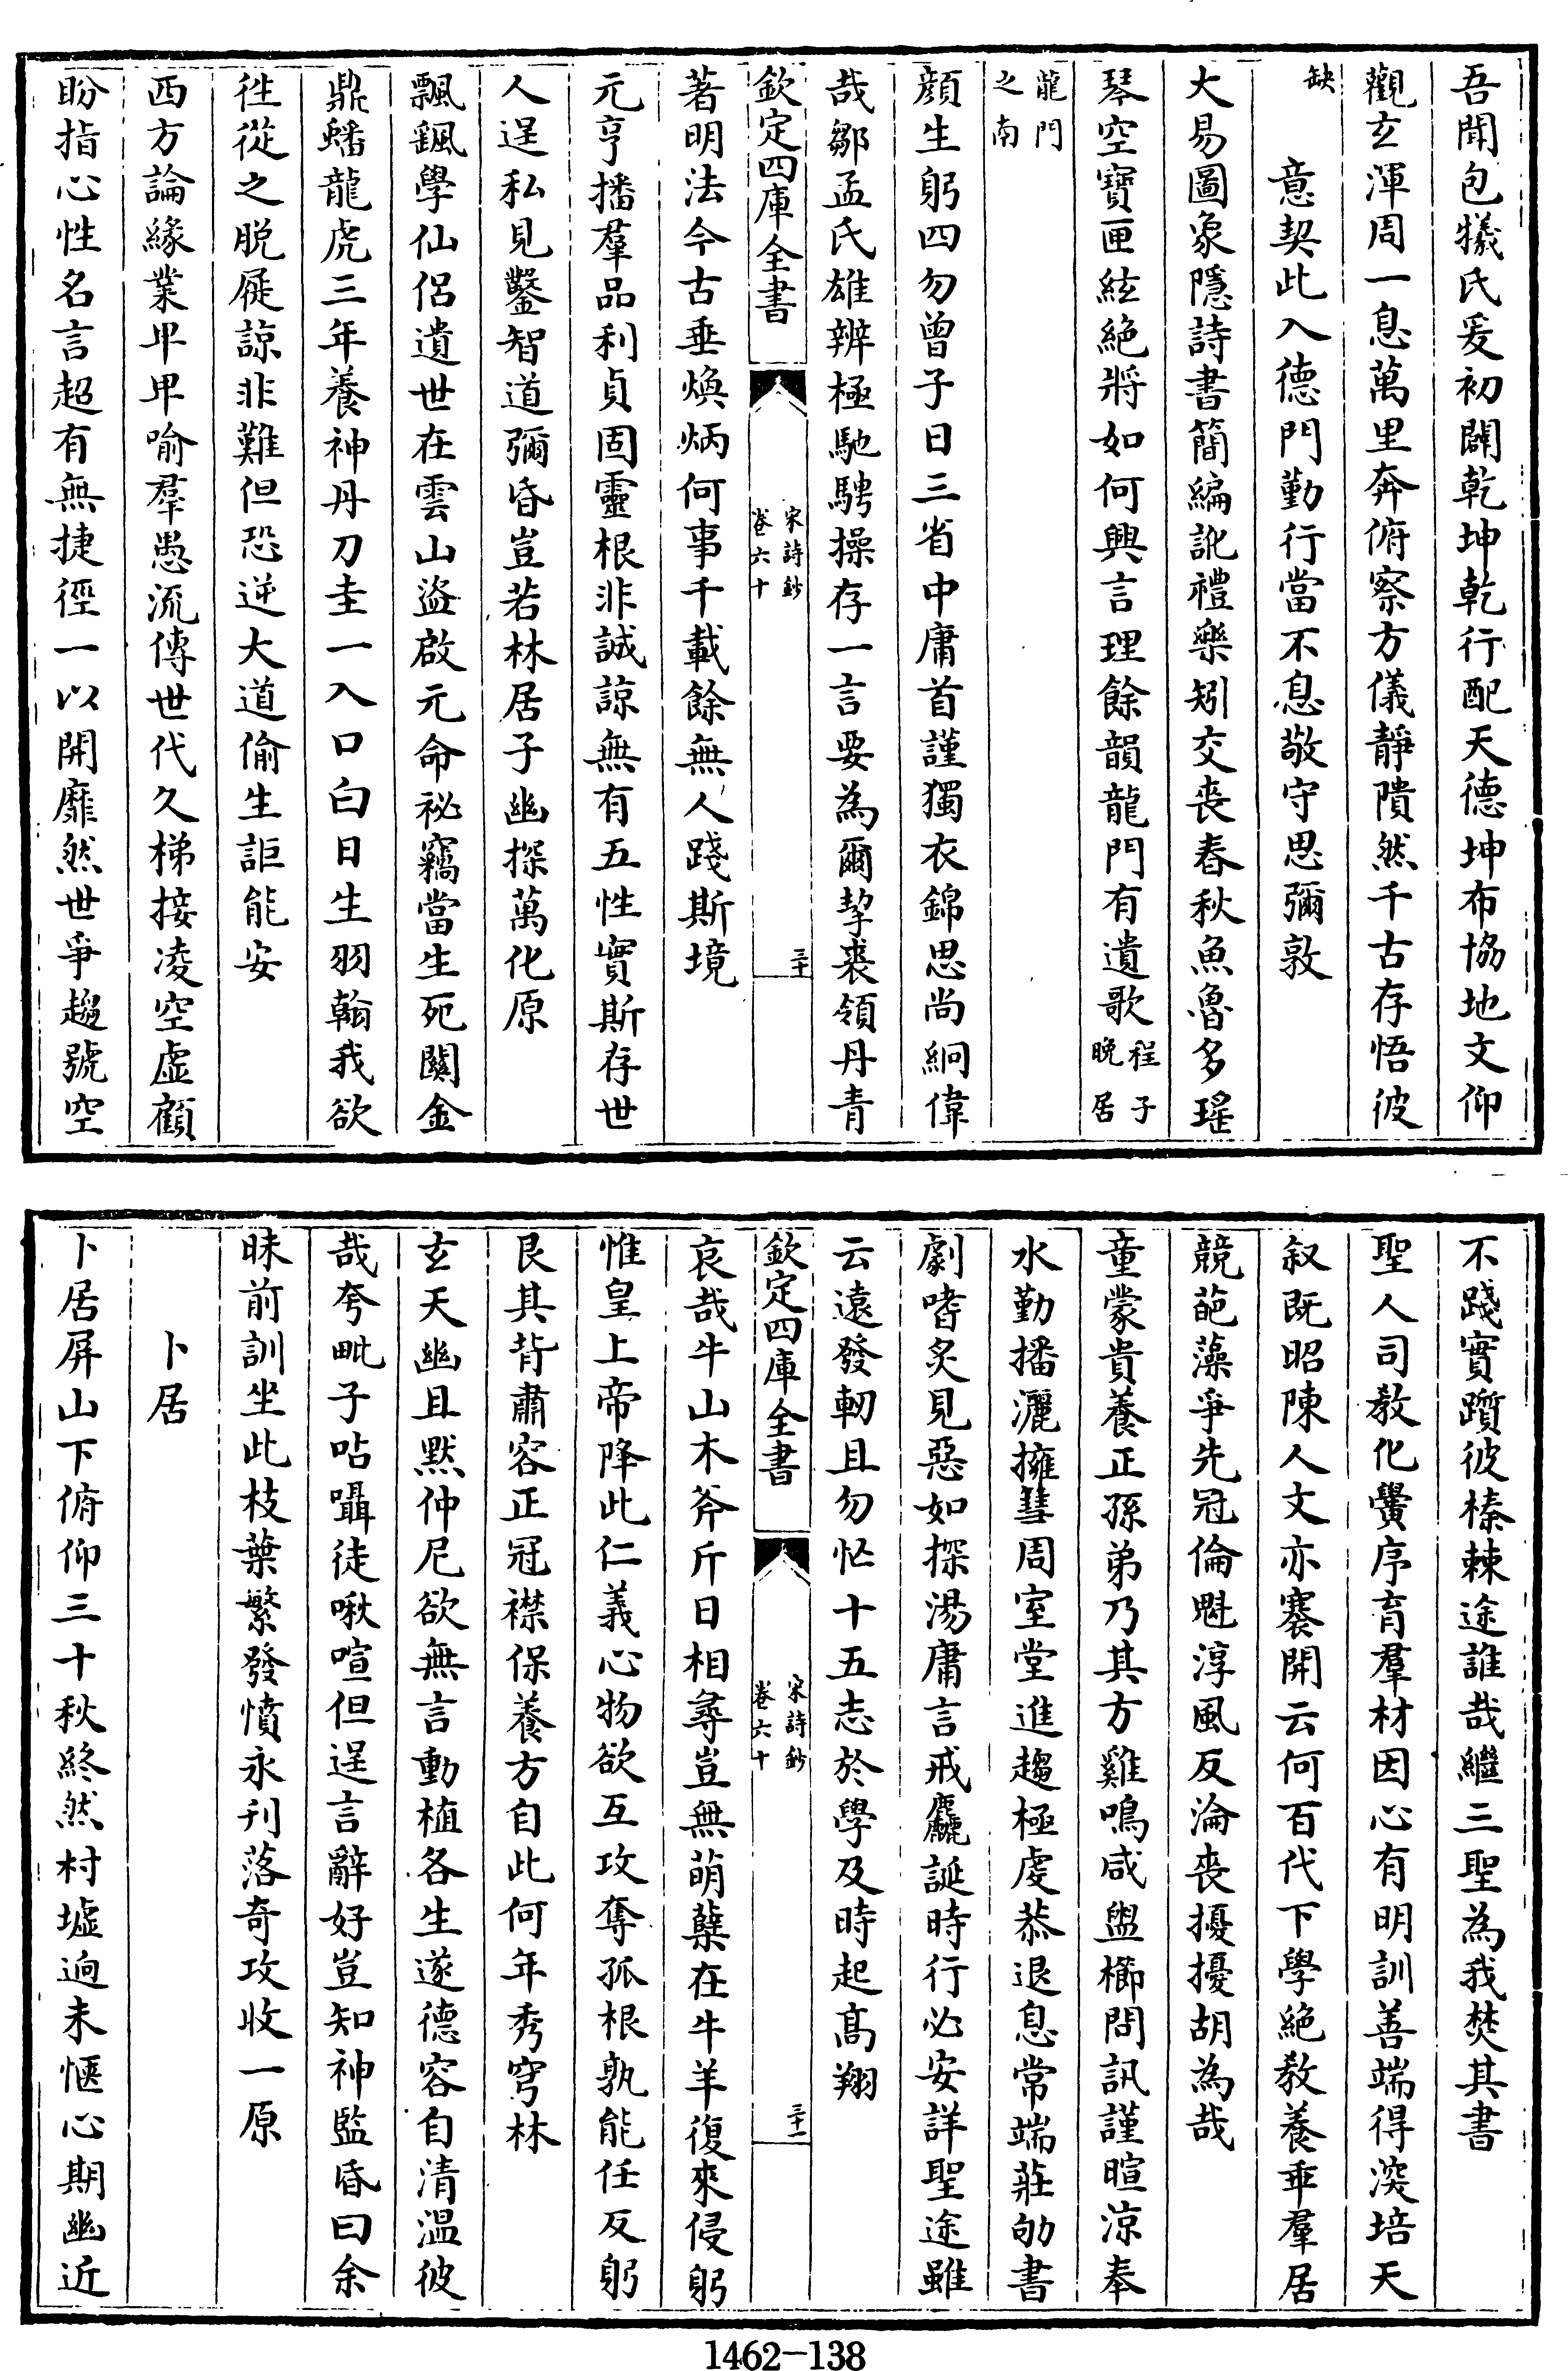 吾聞包犧氏爰初闢乾坤乾行配天德坤布協地文仰
觀玄渾周一息萬里奔俯察方儀靜隤然千古存悟彼
缺　意契此入德門勤行當不息敬守思彌敦
大易圖象隱詩書簡編訛禮樂矧交喪春秋魚魯多瑤
琴空寶匣絃絕將如何興言理餘韻龍門有遺歌程子晚居
龍門之南
顔生躬四勿曾子日三省中庸首謹獨衣錦思尚絅偉
哉鄒孟氏雄辨極馳騁操存一言要為爾挈裘領丹青
欽定四庫全書　宋詩鈔卷六十　三十
著明法今古垂煥炳何事千載餘無人踐斯境
元亨播羣品利貞固靈根非誠諒無有五性實斯存世
人逞私見鑿智道彌昏豈若林居子幽探萬化原
飄飖學仙侶遺世在雲山盜啟元命祕竊當生死關金
鼎蟠龍虎三年養神丹刀圭一入口白日生羽翰我欲
徃從之脫屣諒非難但恐逆大道偷生詎能安
西方論緣業卑卑喻羣愚流傳世代久梯接凌空虛顧
盼指心性名言超有無捷徑一以開靡然世爭趨號空
不踐實躓彼榛棘途誰哉繼三聖為我焚其書
聖人司教化黌序育羣材因心有明訓善端得深培天
叙既昭陳人文亦褰開云何百代下學絕教養乖羣居
競葩藻爭先冠倫魁淳風反淪喪擾擾胡為哉
童蒙貴養正孫弟乃其方雞鳴咸盥櫛問訊謹暄涼奉
水勤播灑擁篲周室堂進趨極虔恭退息常端莊劬書
劇嗜炙見惡如探湯庸言戒麤誕時行必安詳聖途雖
云遠發軔且勿忙十五志於學及時起髙翔
欽定四庫全書　宋詩鈔卷六十　三十一
哀哉牛山木斧斤日相尋豈無萌蘖在牛羊復來侵躬
惟皇上帝降此仁義心物欲互攻奪孤根孰能任反躬
艮其背肅容正冠襟保養方自此何年秀穹林
玄天幽且默仲尼欲無言動植各生遂德容自清溫彼
哉夸毗子呫囁徒啾喧但逞言辭好豈知神監昏曰余
昧前訓坐此枝葉繁發憤永刋落奇攻收一原
卜居
卜居屏山下俯仰三十秋終然村墟迥未愜心期幽近
1462-138